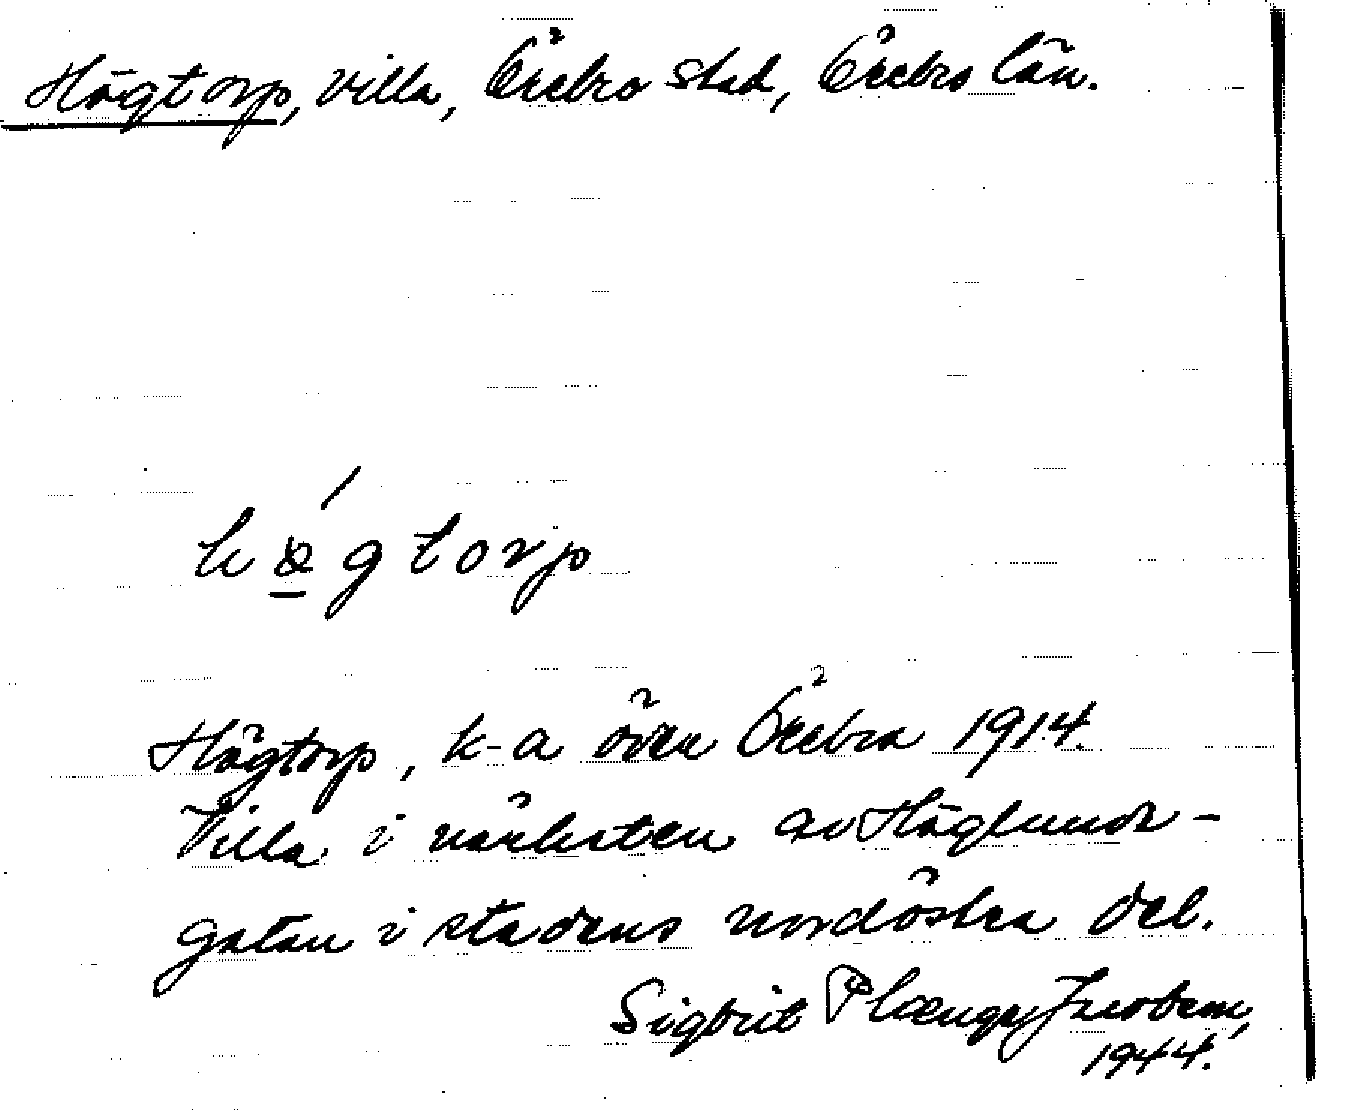 Högtorp, villa, Örebro stad, Örebro län.
högtorp
Högtorp, k-a över Örebro 1914.
Villa i närheten av Höglunds-
gatan i stadens nordöstra del.
Sigbrit Plænge Jacobson,
1944.